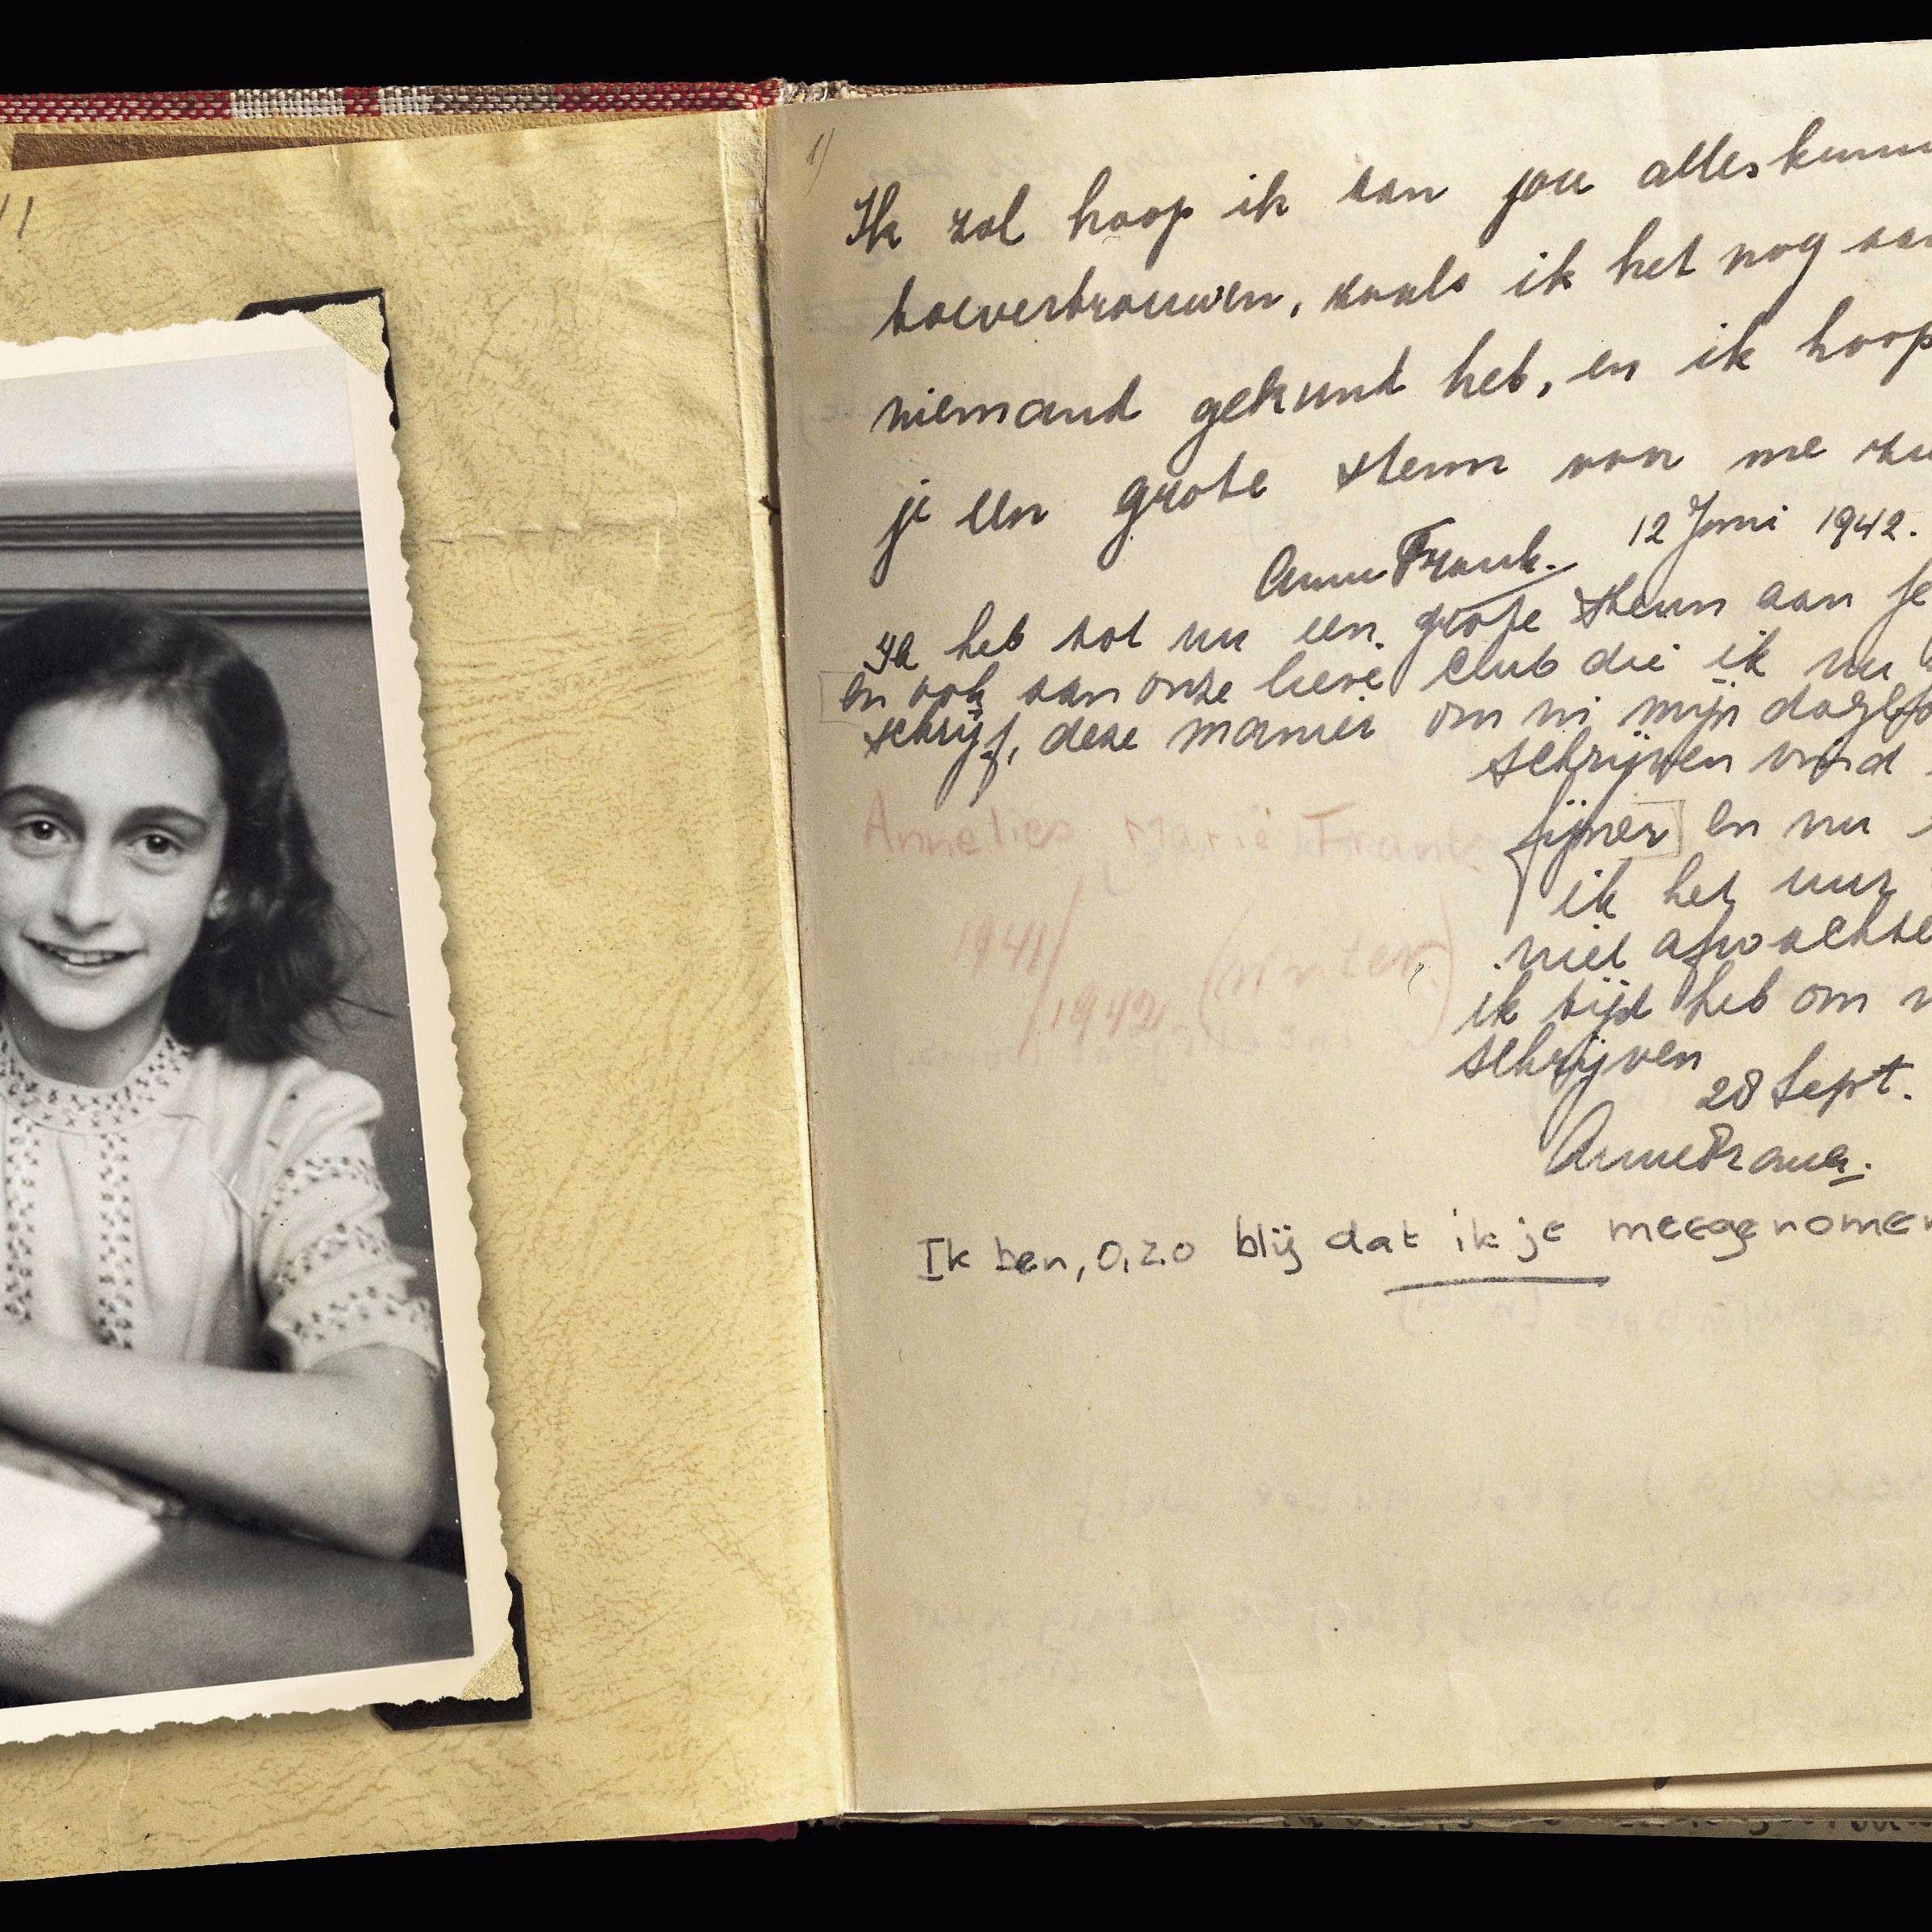 Ik zal hoop ik aan jou alles kunn
toevertrouwen, zoals ik het nog aan
niemand gekund heb, en ik hoop
je een grote steun van me zu
Anne Frank. 12 Juni 1942.
Ik heb tot nu een grote steun aan je
en ook aan onze lieve club die ik nu
schrijf, deze manier om in mijn dagbo
schrijven vind
fijner en nu
ik het uur
niet afwachte
ik tijd heb om
schrijven
28 Sept.
Anne Frank.
Annelies Marie Frank
1941/
1942. (winter)
Ik ben, O, zo blij dat ik je meegenomen